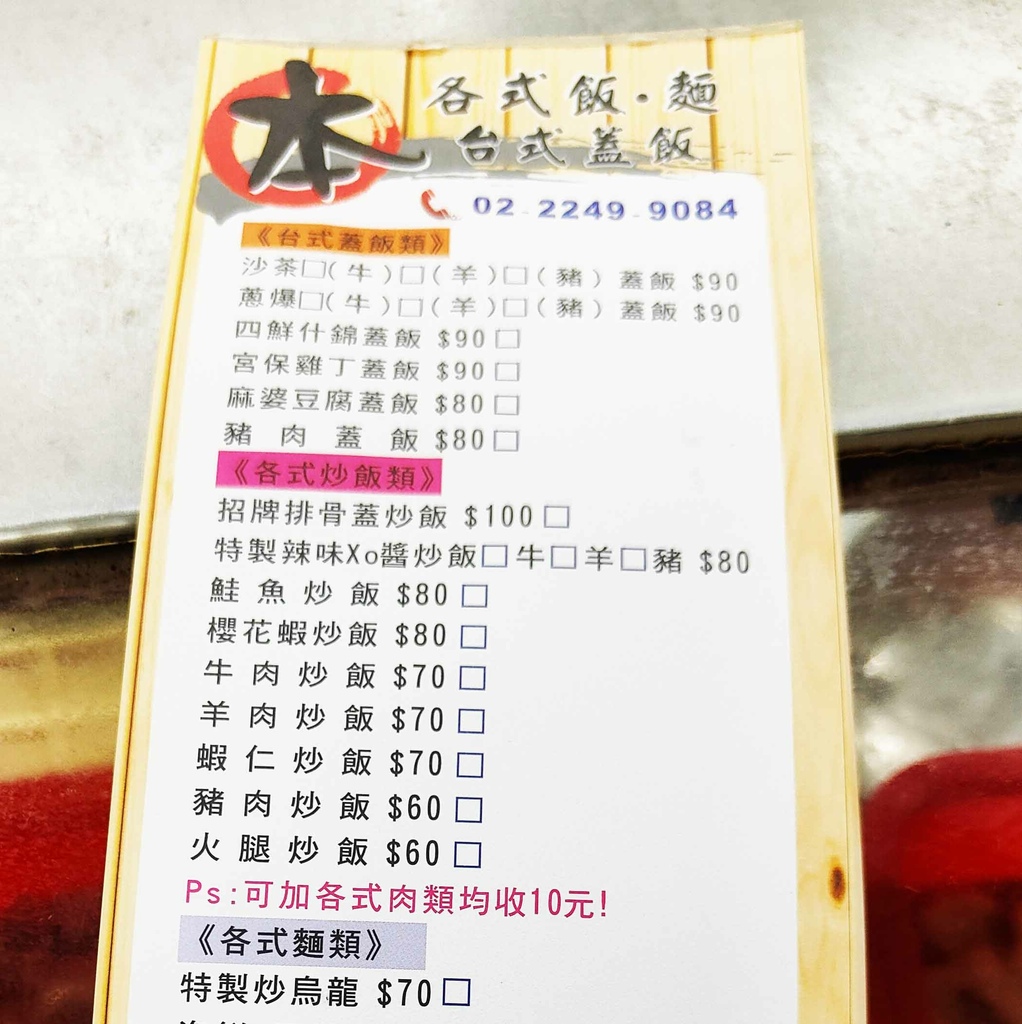 本
各式飯·麵
台式蓋飯
02-2249-9084
《台式蓋飯類》
沙茶□(牛)□(羊)□(豬)蓋飯 $90
蔥爆□(牛)□(羊)□(豬)蓋飯 $90
四鮮什錦蓋飯 $90□
宮保雞丁蓋飯 $90□
麻婆豆腐蓋飯 $80□
豬肉蓋飯 $80□
《各式炒飯類》
招牌排骨蓋炒飯 $100□
特製辣味Xo醬炒飯□牛□羊□豬 $80
鮭魚炒飯 $80□
櫻花蝦炒飯 $80□
牛肉炒飯 $70□
羊肉炒飯 $70□
蝦仁炒飯 $70□
豬肉炒飯 $60□
火腿炒飯 $60□
Ps:可加各式肉類均收10元!
《各式麵類》
特製炒烏龍 $70□